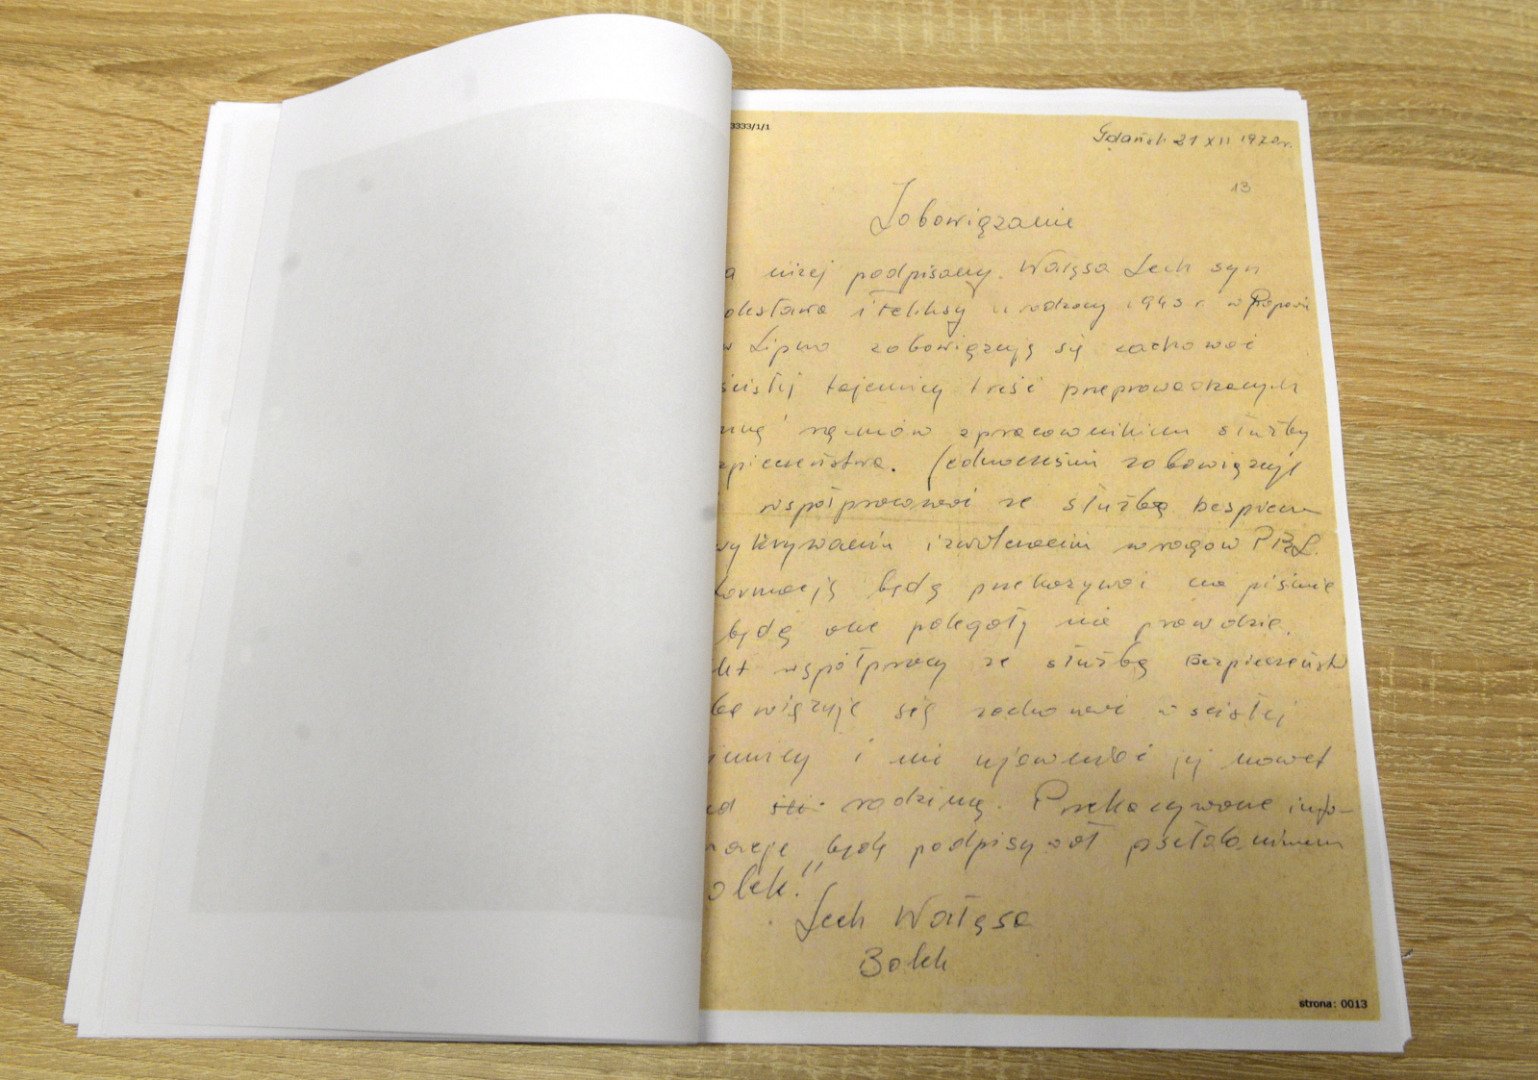 3333/1/1
Gdańsk 21 XII 1970r.
13
Zobowiązanie
a niżej podpisany. Wałęsa Lech syn
olesława i Feliksy urodzony 1943 r w Popowie
w Lipno zobowiązuję się zachować
ścisłej tajemnicy treść przeprowadzonych
mną rozmów z pracownikiem służby
zpieczeństwa. Jednocześnie zobowiązuję
współpracować ze służbą bezpiecze
wykrywaniu i zwalczaniu wrogów PRL.
formację będę przekazywać na piśmie
będą one polegały na prawdzie.
kt współpracy ze służbą Bezpieczeńst
bowiązuje się zachować w ścisłej
jemnicy i nie ujawniać jej nawet
ed rodziną. Przekazywane info-
macje będę podpisywał
olek."
Lech Wałęsa
Bolek
strona: 0013